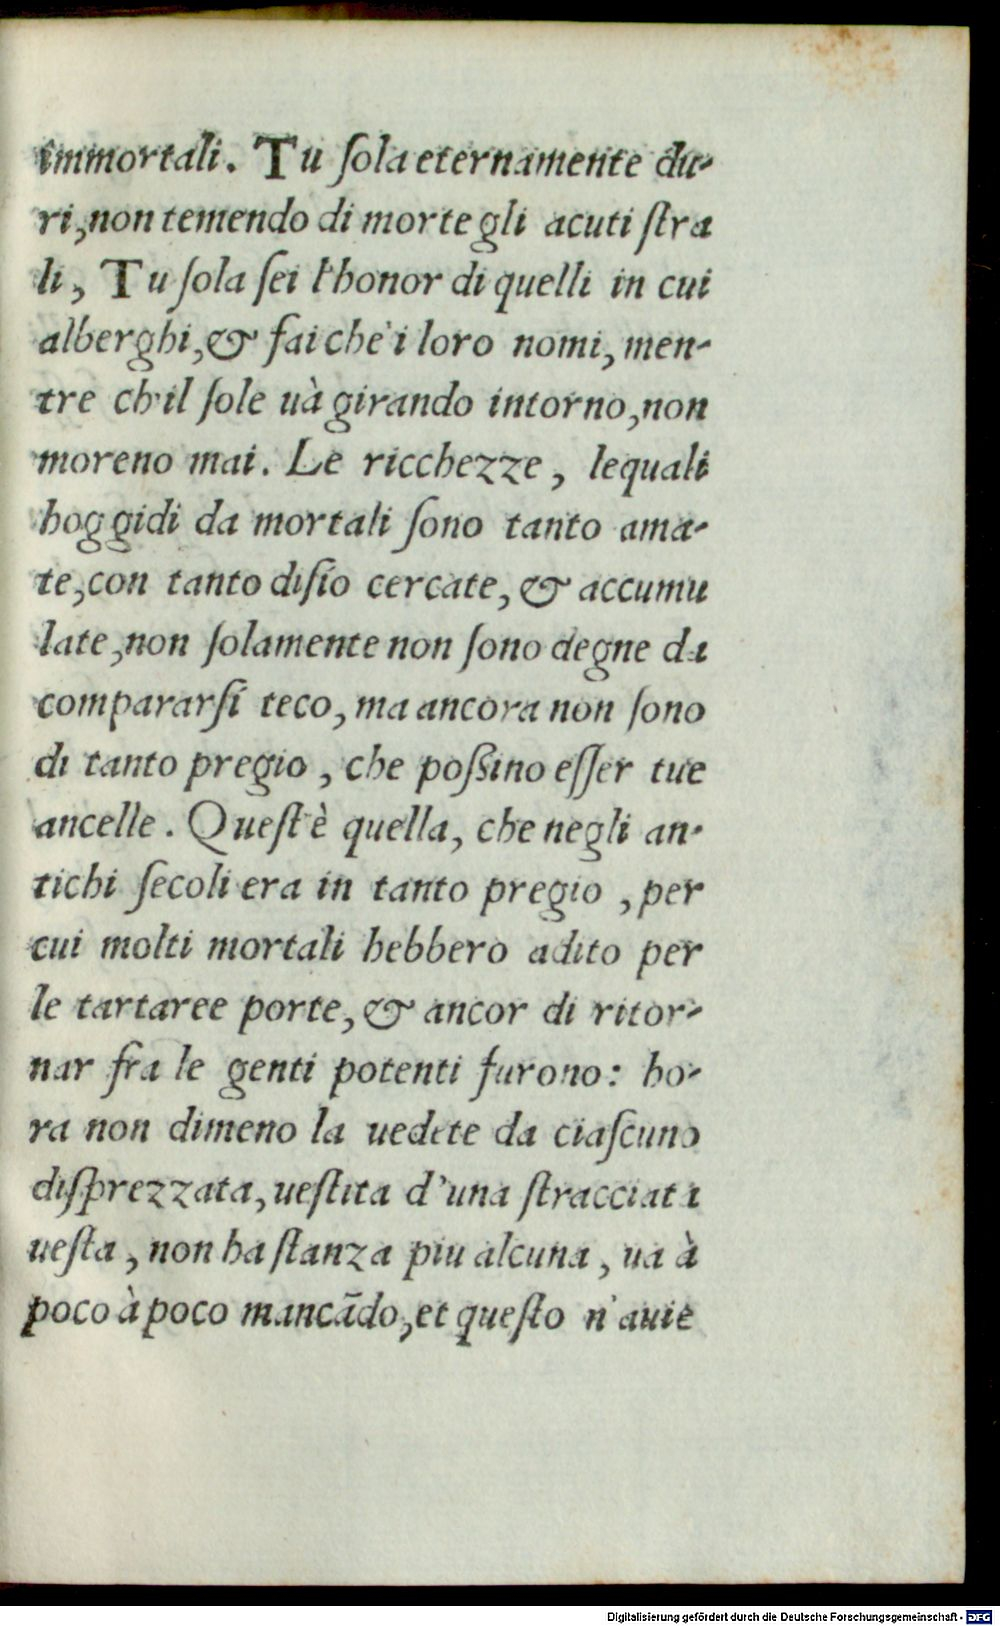 immortali. Tu ſola eternamente du-
ri, non temendo di morte gli acuti ſtra
li, Tu ſola ſei l'honor di quelli in cui
alberghi, & fai che i loro nomi, men-
tre ch'il ſole uà girando intorno, non
moreno mai. Le ricchezze, lequali
hoggidi da mortali ſono tanto ama-
te, con tanto diſio cercate, & accumu
late, non ſolamente non ſono degne di
compararſi teco, ma ancora non ſono
di tanto pregio, che poſsino eſſer tue
ancelle. Queſt'è quella, che negli an-
tichi ſecoli era in tanto pregio, per
cui molti mortali hebbero adito per
le tartaree porte, & ancor di ritor-
nar fra le genti potenti furono: ho-
ra non dimeno la uedete da ciaſcuno
diſprezzata, ueſtita d'una ſtracciata
ueſta, non ha ſtanza piu alcuna, ua à
poco à poco mancãdo, et queſto n'auie
Digitalisierung gefördert durch die Deutsche Forschungsgemeinschaft - DFG